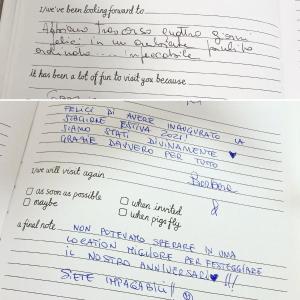 I/we've been looking forward to
Abbiamo trascorso quattro giorni
felici in un ambiente pulito
ordinato .... impeccabile
it has been a lot of fun to visit you because
FELICI DI AVERE INAUGURATO LA
STAGIONE ESTIVA 2021!
SIAMO STATI DIVINAMENTE ♥
GRAZIE DAVVERO PER TUTTO
Barbara
I/we will visit again
&
as soon as possible
when invited
maybe
when pigs fly
a final note
NON POTEVAMO SPERARE IN UNA
LOCATION MIGLIORE PER FESTEGGIARE
IL NOSTRO ANNIVERSARIO ♥ !!!
SIETE IMPAGABILI!!